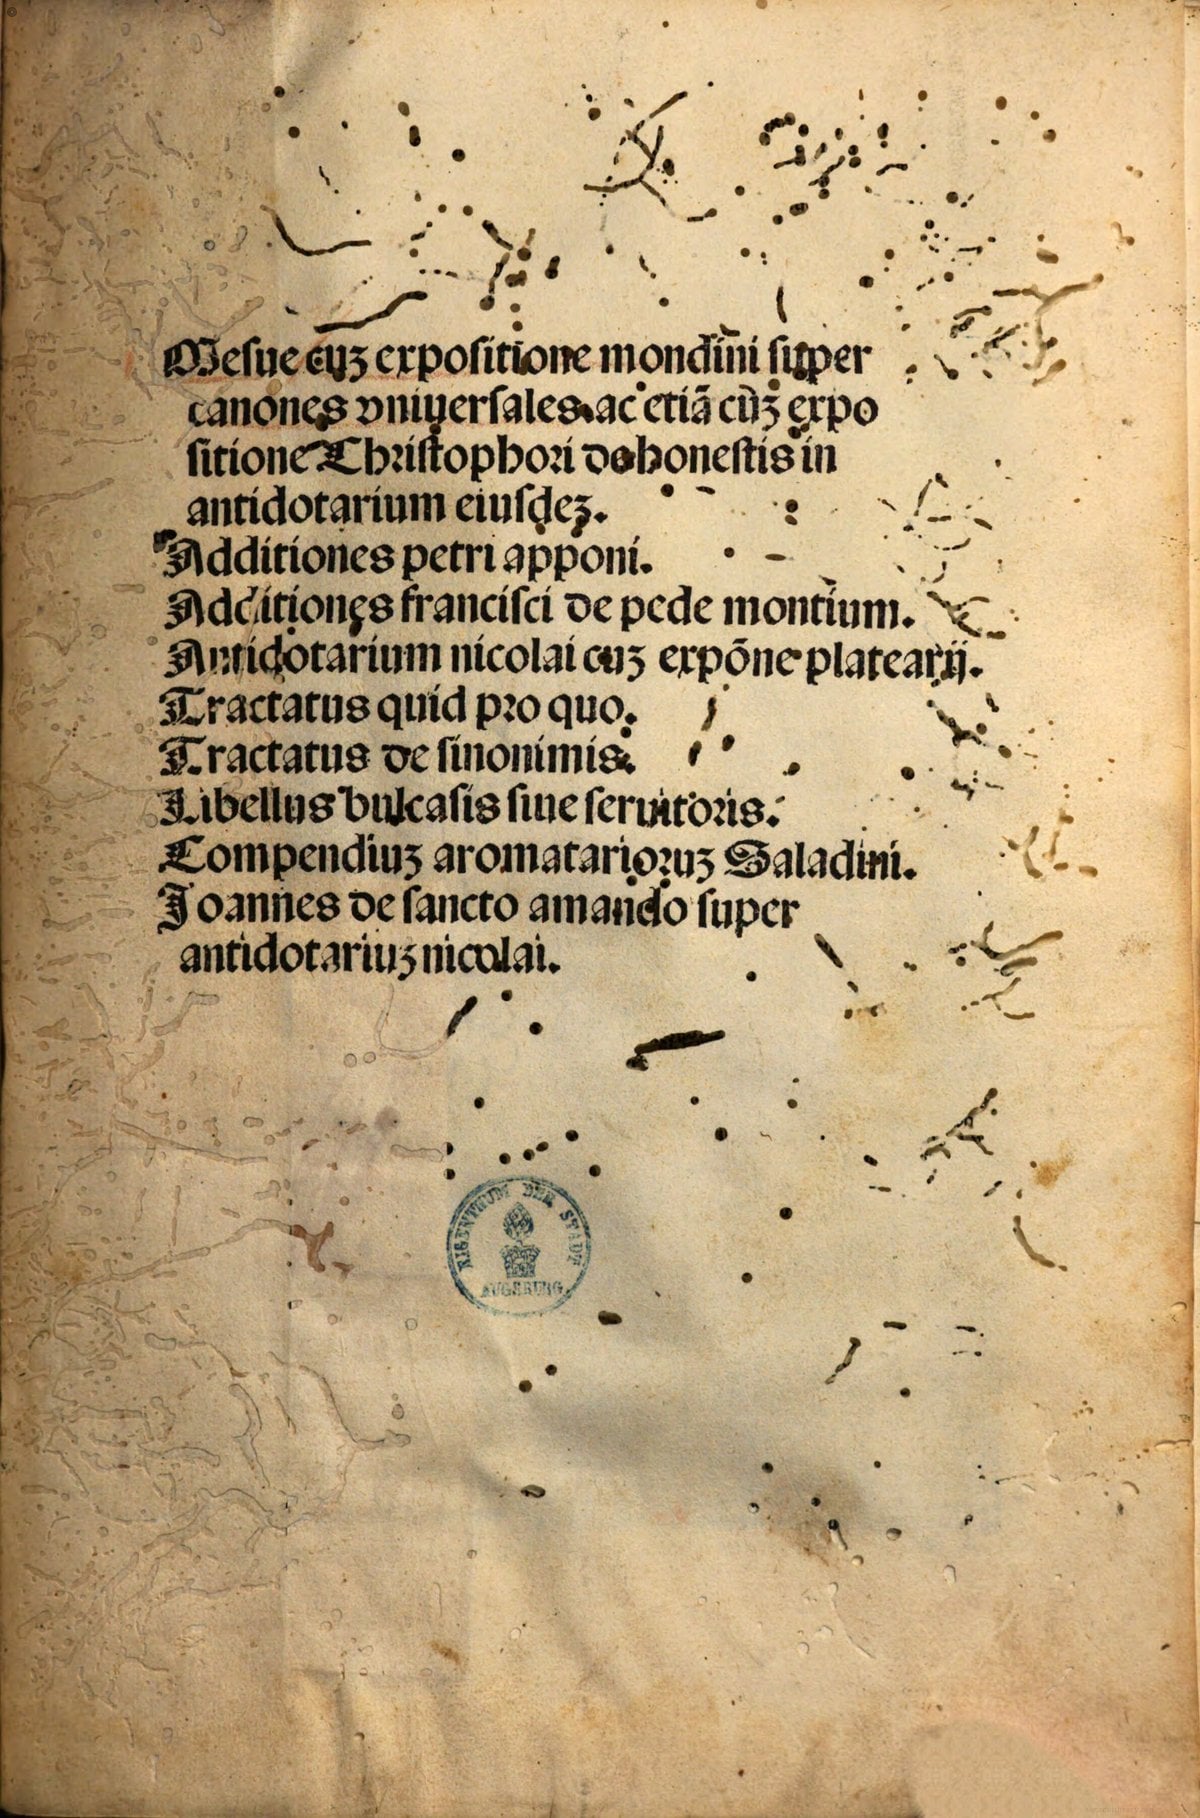 Mesue cuȝ expositione mondini super
canones vniuersales. ac etiā cūȝ expo
sitione Christophori de honestis in
antidotarium eiusdeȝ.
Additiones petri apponi.
Additiones francisci de pede montium.
Antidotarium nicolai cuȝ expōne platearij.
Tractatus quid pro quo.
Tractatus de sinonimis.
Libellus bulcasis siue seruitoris.
Compendiuȝ aromatarioruȝ Saladini.
Joannes de sancto amando super
antidotariuȝ nicolai.
EIGENTHUM DER STADT
AUGSBURG